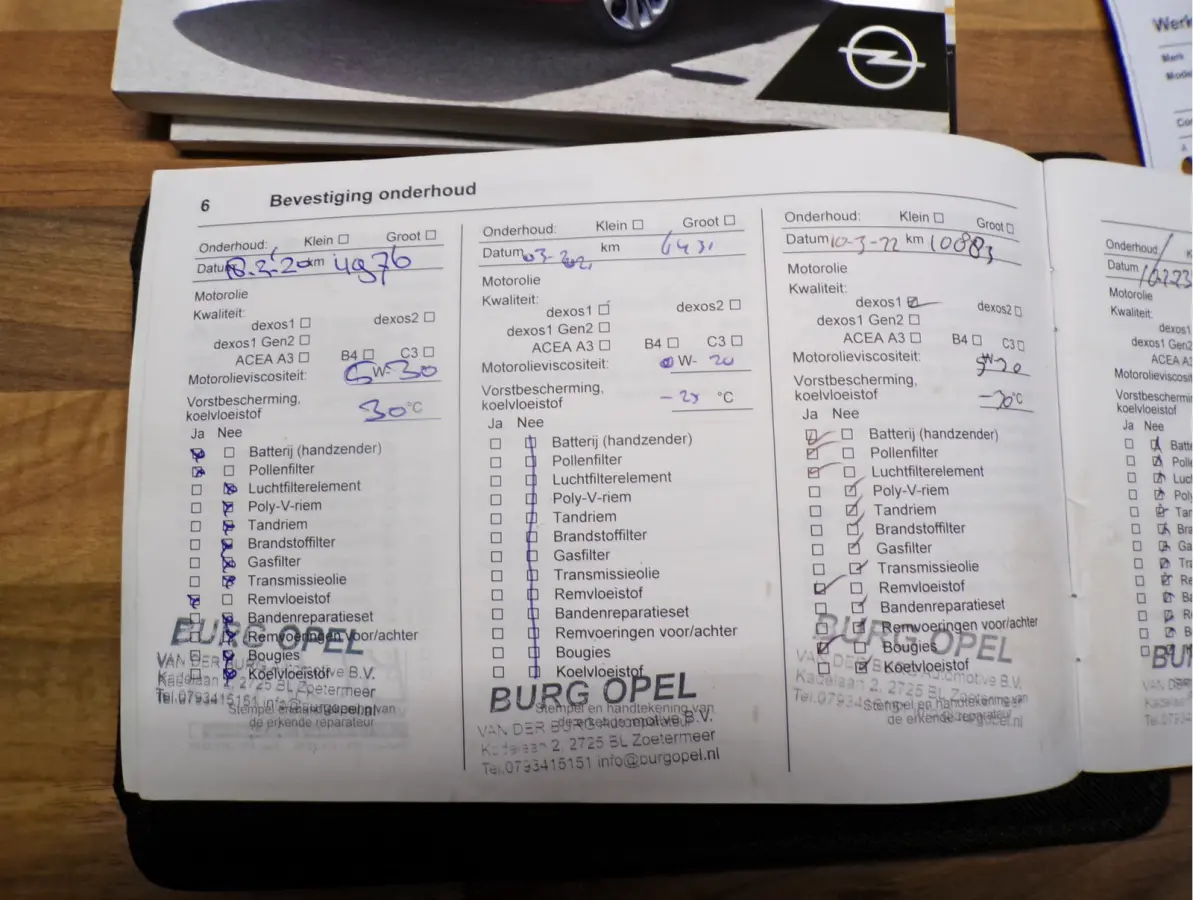 Werk
Merk
Mode
Co
6 Bevestiging onderhoud
Onderhoud: Klein ☐ Groot ☐
Datum 18-3-20 km 4976
Motorolie
Kwaliteit:
dexos1 ☐ dexos2 ☐
dexos1 Gen2 ☐
ACEA A3 ☐ B4 ☐ C3 ☐
Motorolieviscositeit: 5 W- 30
Vorstbescherming,
koelvloeistof 30 °C
Ja Nee
Batterij (handzender)
Pollenfilter
Luchtfilterelement
Poly-V-riem
Tandriem
Brandstoffilter
Gasfilter
Transmissieolie
Remvloeistof
Bandenreparatieset
Remvoeringen voor/achter
Bougies
Koelvloeistof
Stempel en handtekening van
de erkende reparateur
BURG OPEL
VAN DER BURG Automotive B.V.
Kadelaan 2, 2725 BL Zoetermeer
Tel.0793415151 info@burgopel.nl
Onderhoud: Klein ☐ Groot ☐
Datum 03- 2021 km 6431
Motorolie
Kwaliteit:
dexos1 ☐ dexos2 ☐
dexos1 Gen2 ☐
ACEA A3 ☐ B4 ☐ C3 ☐
Motorolieviscositeit: 0 W- 20
Vorstbescherming,
koelvloeistof °C
Ja Nee
Batterij (handzender)
Pollenfilter
Luchtfilterelement
Poly-V-riem
Tandriem
Brandstoffilter
Gasfilter
Transmissieolie
Remvloeistof
Bandenreparatieset
Remvoeringen voor/achter
Bougies
Koelvloeistof
Stempel en handtekening van
de erkende reparateur
BURG OPEL
VAN DER BURG Automotive B.V.
Kadelaan 2, 2725 BL Zoetermeer
Tel.0793415151 info@burgopel.nl
Onderhoud: Klein ☐ Groot ☐
Datum 10-3-22 km 10083
Motorolie
Kwaliteit:
dexos1 ☑ dexos2 ☐
dexos1 Gen2 ☐
ACEA A3 ☐ B4 ☐ C3 ☐
Motorolieviscositeit: W-20
Vorstbescherming,
koelvloeistof °C
Ja Nee
Batterij (handzender)
Pollenfilter
Luchtfilterelement
Poly-V-riem
Tandriem
Brandstoffilter
Gasfilter
Transmissieolie
Remvloeistof
Bandenreparatieset
Remvoeringen voor/achter
Bougies
Koelvloeistof
Stempel en handtekening van
de erkende reparateur
BURG OPEL
VAN DER BURG Automotive B.V.
Kadelaan 2, 2725 BL Zoetermeer
Onderhoud
Datum
Motorolie
Kwaliteit:
dexos1
dexos1 Gen2
ACEA A3
Motorolieviscosit
Vorstbeschermin
koelvloeistof
Ja Nee
Batt
Poll
Luc
Poly
Tan
Bra
Gas
Tra
Re
Ba
R
B
BU
VAN DER
Kadelaan
Tel.0793